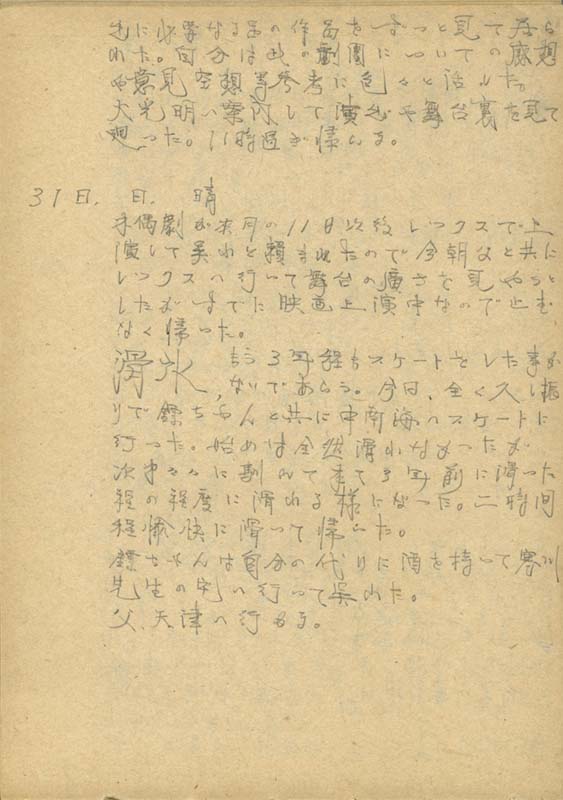 也に必要なる呂の作品をずっと見て居ら
れた。自分は此の劇團についての感想
や意見空想等参考に色々と話した。
大光明へ案内して演出や舞台裏を見て
廻った。11時過ぎ帰へる。
31日、日、晴
木偶劇が来月の11日以後レックスで上
演して呉れと頼まれたので今朝父と共に
レックスへ行いて舞台の廣さを見やうと
したがすでに映画上演中なので止む
なく帰った。
滑氷、もう3年程もスケートをした事が
ないであらう。今日、全く久し振
りで鏢ちゃんと共に中南海へスケートに
行った。始めは全然滑れなかったが
次第々々に馴れて来て3年前に滑った
程の程度に滑れる様になった。二時間
程愉快に滑って帰へた。
鏢ちゃんは自分の代りに酒を持って寒川
先生の宅へ行って呉れた。
父、天津へ行かる。